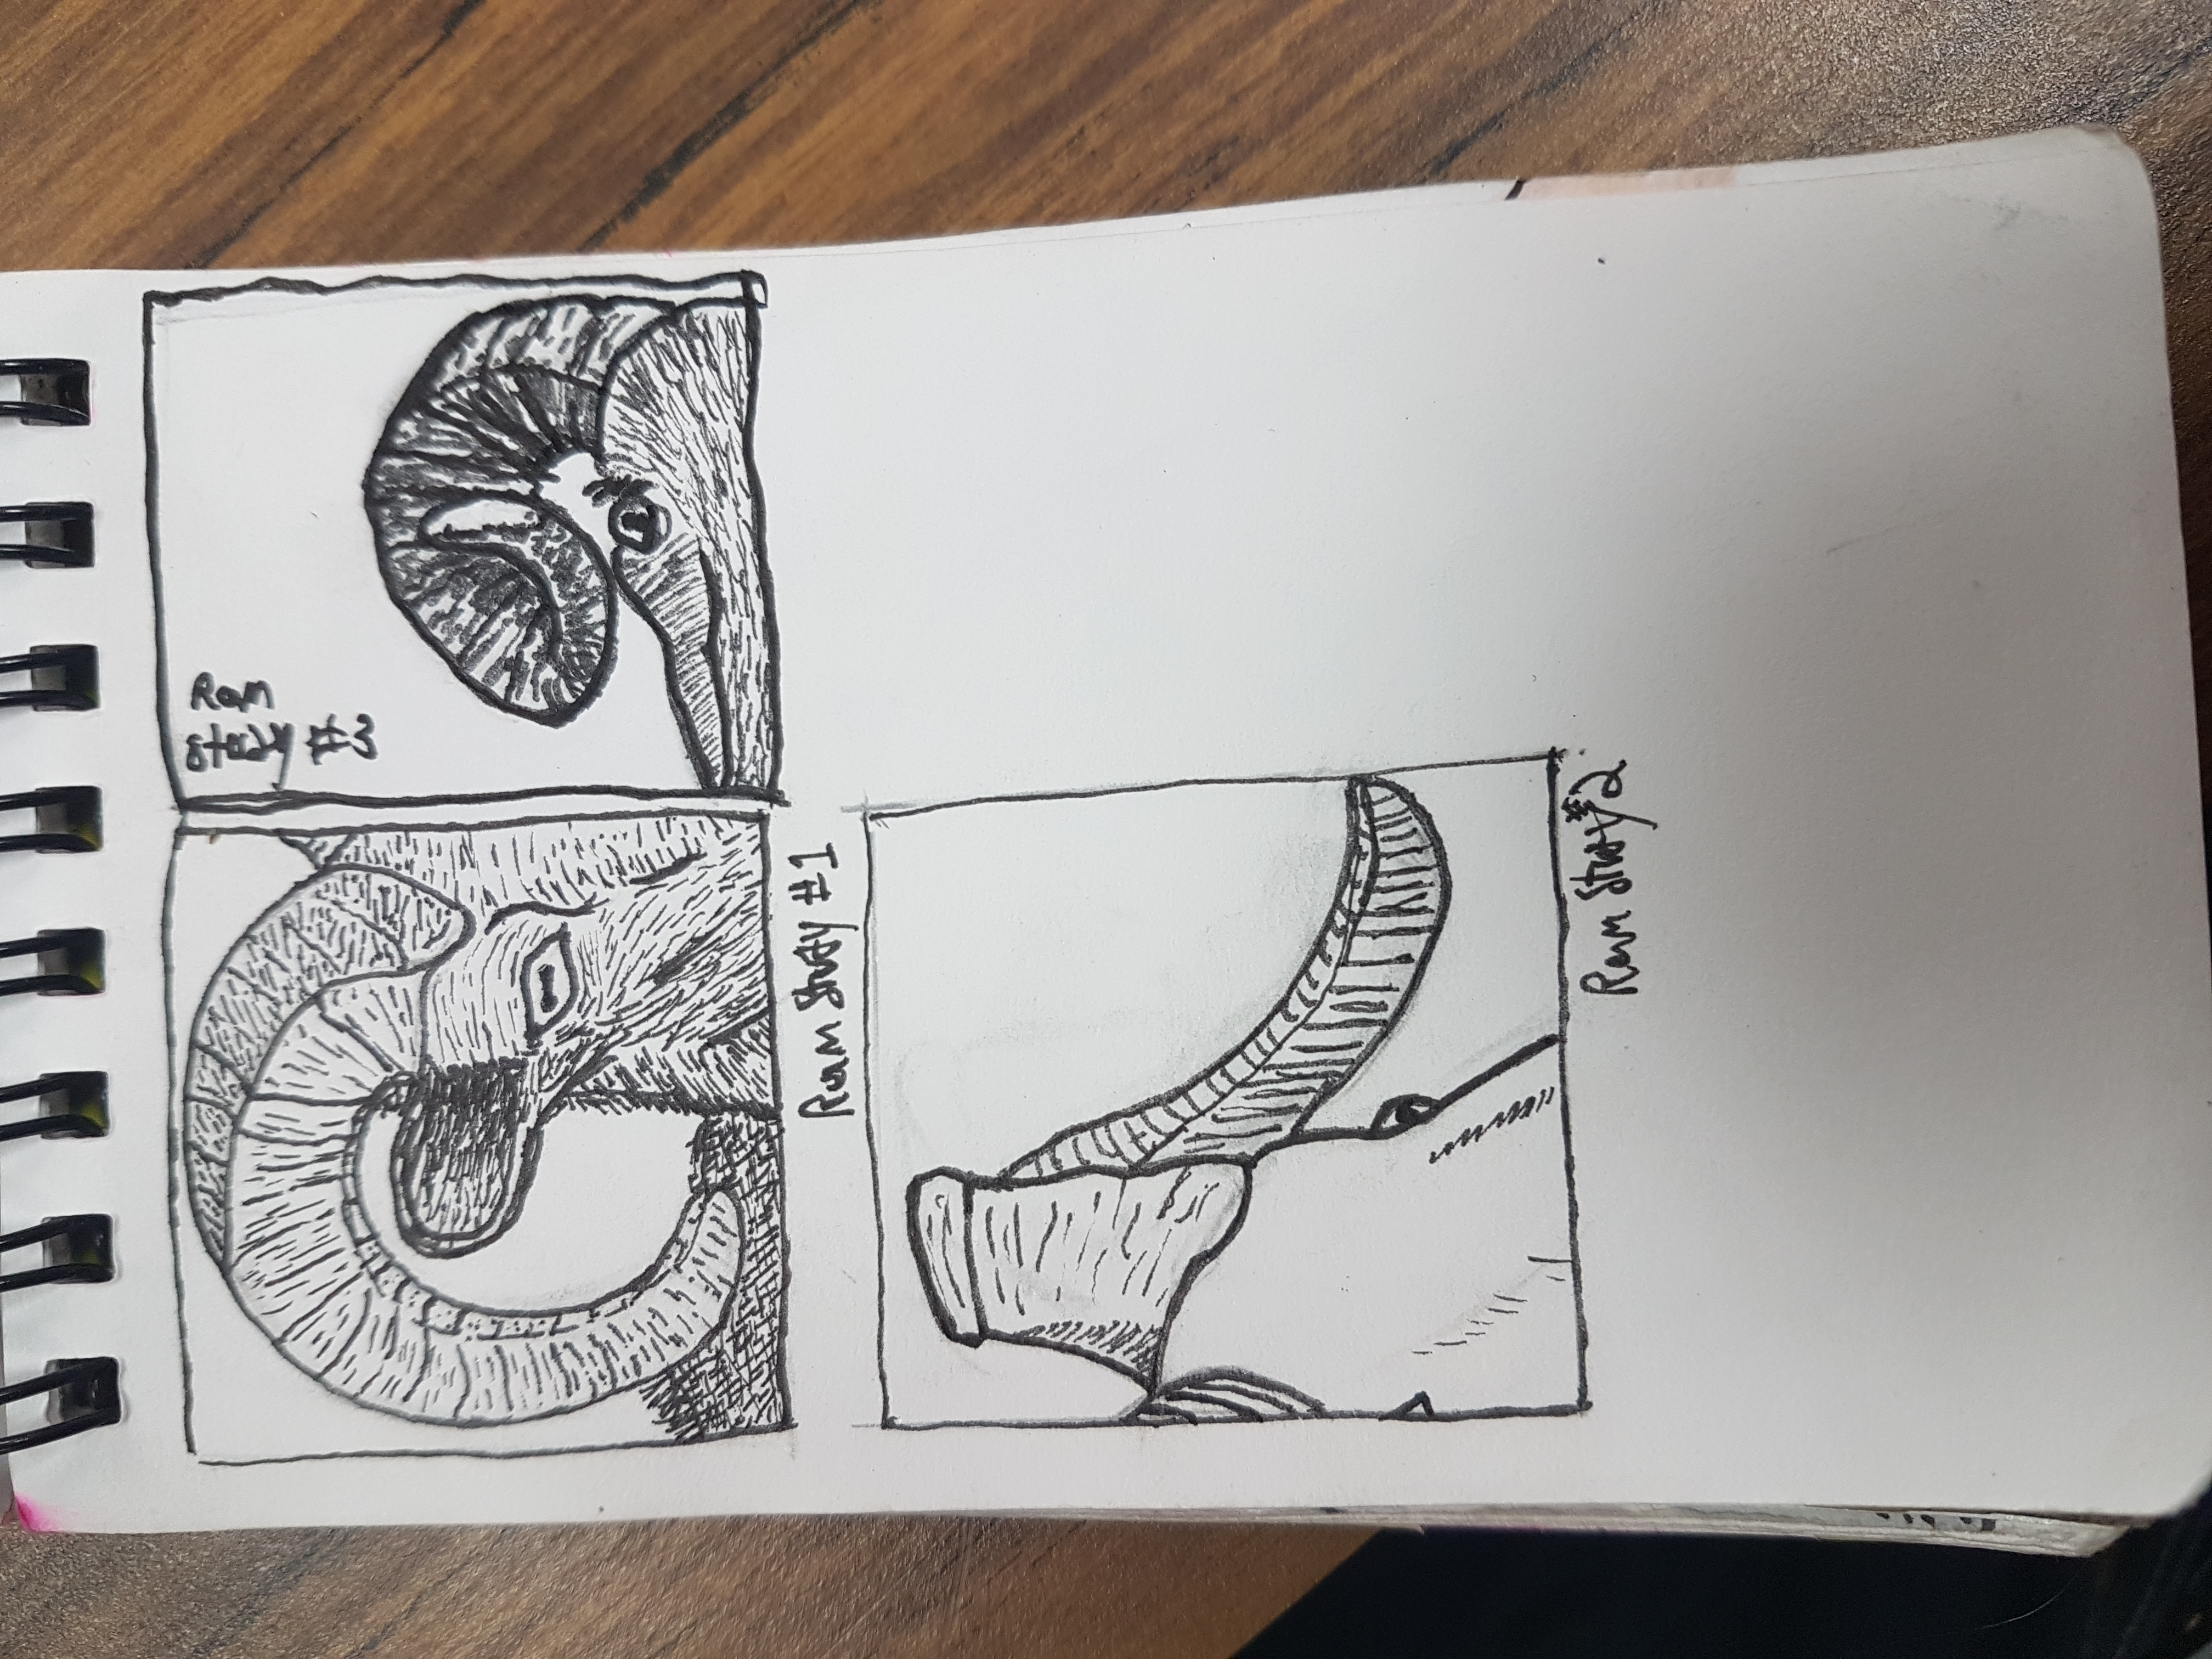 Ram
Study #3
Ram Study #1
Ram Study #2